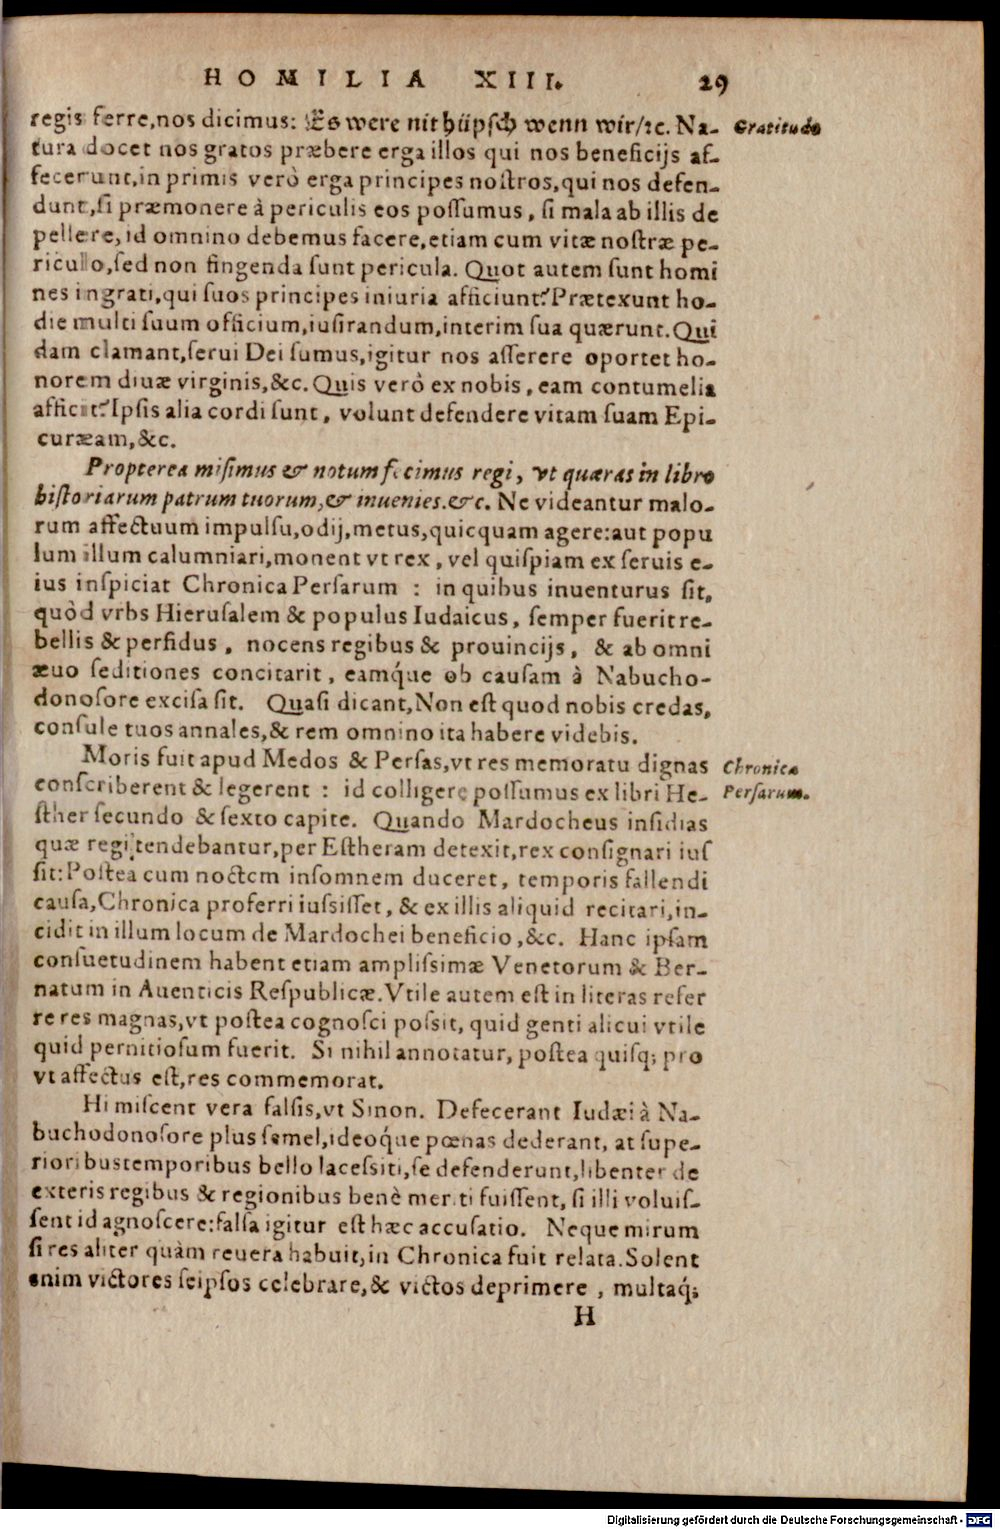 HOMILIA XIII. 29
regis ferre,nos dicimus: Es were nit hüpsch wenn wir/ꝛc. Na- Gratitudo
tura docet nos gratos præbere erga illos qui nos beneficijs af-
fecerunt,in primis verò erga principes nostros,qui nos defen-
dunt,si præmonere à periculis eos possumus, si mala ab illis de
pellere,id omnino debemus facere,etiam cum vitæ nostræ pe-
riculo,sed non fingenda sunt pericula. Quot autem sunt homi
nes ingrati,qui suos principes iniuria afficiunt? Prætexunt ho-
die multi suum officium,iusirandum,interim sua quærunt. Qui
dam clamant,serui Dei sumus,igitur nos asserere oportet ho-
norem diuæ virginis,&c. Quis verò ex nobis, eam contumelia
afficit? Ipsis alia cordi sunt, volunt defendere vitam suam Epi-
curæam,&c.
Propterea misimus & notum fecimus regi, vt quæras in libro
historiarum patrum tuorum,& inuenies.&c. Ne videantur malo-
rum affectuum impulsu,odij,metus,quicquam agere:aut popu
lum illum calumniari,monent vt rex, vel quispiam ex seruis e-
ius inspiciat Chronica Persarum : in quibus inuenturus sit,
quòd vrbs Hierusalem & populus Iudaicus, semper fuerit re-
bellis & perfidus, nocens regibus & prouincijs, & ab omni
æuo seditiones concitarit, eamq́ue ob causam à Nabucho-
donosore excisa sit. Quasi dicant,Non est quod nobis credas,
consule tuos annales,& rem omnino ita habere videbis.
Moris fuit apud Medos & Persas,vt res memoratu dignas Chronica
conscriberent & legerent : id colligere possumus ex libri He- Persarum.
sther secundo & sexto capite. Quando Mardocheus insidias
quæ regi tendebantur,per Estheram detexit,rex consignari ius
sit:Postea cum noctem insomnem duceret, temporis fallendi
causa,Chronica proferri iussisset, & ex illis aliquid recitari,in-
cidit in illum locum de Mardochei beneficio,&c. Hanc ipsam
consuetudinem habent etiam amplissimæ Venetorum & Ber-
natum in Auenticis Respublicæ. Vtile autem est in literas refer
re res magnas,vt postea cognosci possit, quid genti alicui vtile
quid pernitiosum fuerit. Si nihil annotatur, postea quisq; pro
vt affectus est,res commemorat.
Hi miscent vera falsis,vt Sinon. Defecerant Iudæi à Na-
buchodonosore plus semel,ideoq́ue pœnas dederant, at supe-
rioribus temporibus bello lacessiti,se defenderunt,libenter de
exteris regibus & regionibus benè meriti fuissent, si illi voluis-
sent id agnoscere:falsa igitur est hæc accusatio. Neque mirum
si res aliter quàm reuera habuit,in Chronica fuit relata. Solent
enim victores seipsos celebrare,& victos deprimere, multaq́;
H
Digitalisierung gefördert durch die Deutsche Forschungsgemeinschaft - DFG